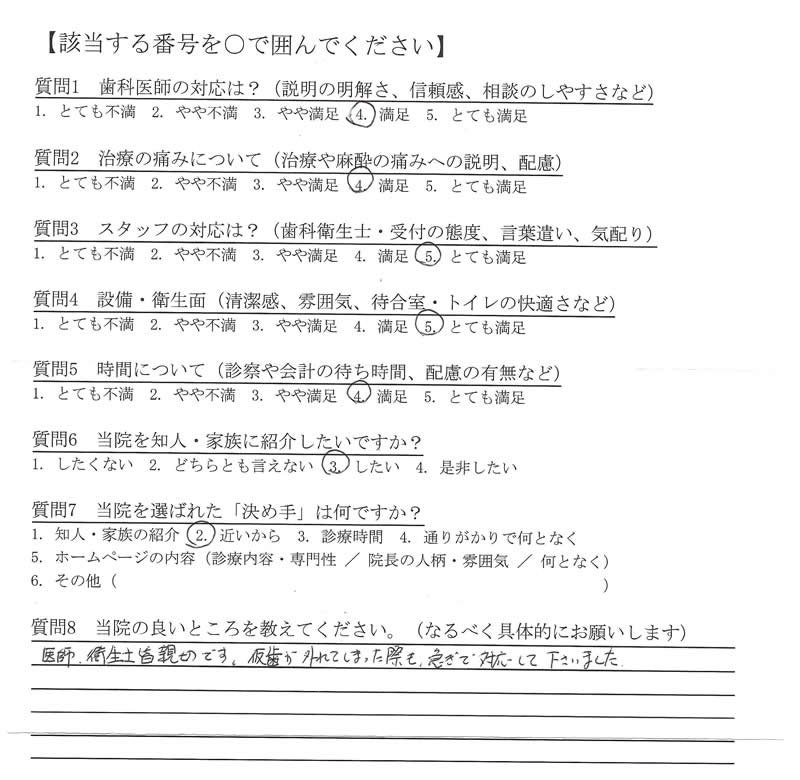 【該当する番号を〇で囲んでください】
質問1 歯科医師の対応は？（説明の明解さ、信頼感、相談のしやすさなど）
1. とても不満 2. やや不満 3. やや満足 4. 満足 5. とても満足
質問2 治療の痛みについて（治療や麻酔の痛みへの説明、配慮）
1. とても不満 2. やや不満 3. やや満足 4. 満足 5. とても満足
質問3 スタッフの対応は？（歯科衛生士・受付の態度、言葉遣い、気配り）
1. とても不満 2. やや不満 3. やや満足 4. 満足 5. とても満足
質問4 設備・衛生面（清潔感、雰囲気、待合室・トイレの快適さなど）
1. とても不満 2. やや不満 3. やや満足 4. 満足 5. とても満足
質問5 時間について（診察や会計の待ち時間、配慮の有無など）
1. とても不満 2. やや不満 3. やや満足 4. 満足 5. とても満足
質問6 当院を知人・家族に紹介したいですか？
1. したくない 2. どちらとも言えない 3. したい 4. 是非したい
質問7 当院を選ばれた「決め手」は何ですか？
1. 知人・家族の紹介 2. 近いから 3. 診療時間 4. 通りがかりで何となく
5. ホームページの内容（診療内容・専門性 ／ 院長の人柄・雰囲気 ／ 何となく）
6. その他（ ）
質問8 当院の良いところを教えてください。（なるべく具体的にお願いします）
医師、衛生士皆親切です。仮歯が外れてしまった際も、急ぎで対応して下さいました.